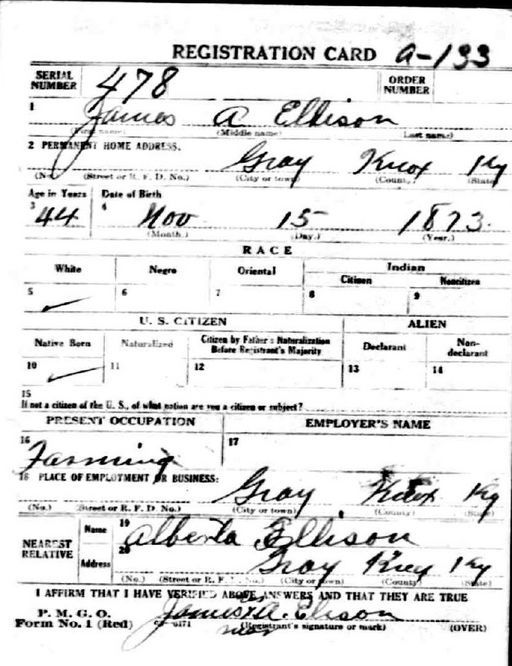 REGISTRATION CARD A-133
SERIAL NUMBER 478 ORDER NUMBER
1 James A Ellison
(First name) (Middle name) Last name)
2 PERMANENT HOME ADDRESS.
Gray Knox Ky
(No.) (Street or R. F. D. No.) (City or town) (County) (State)
Age in Years Date of Birth
3 44 4 Nov 15 1873
(Month.) (Day.) (Year.)
RACE
White Negro Oriental Indian
Citizen Noncitizen
5 ✓ 6 7 8 9
U. S. CITIZEN ALIEN
Native Born Naturalized Citizen by Father's Naturalization Before Registrant's Majority Declarant Non-declarant
10 ✓ 11 12 13 14
15
If not a citizen of the U. S., of what nation are you a citizen or subject?
PRESENT OCCUPATION EMPLOYER'S NAME
16 Farming 17
18 PLACE OF EMPLOYMENT OR BUSINESS:
Gray Knox Ky
(No.) (Street or R. F. D. No.) (City or town) (County) (State)
NEAREST RELATIVE Name 19 Alberta Ellison
Address 20 Gray Knox Ky
(No.) (Street or R. F. D. No.) (City or town) (County) (State)
I AFFIRM THAT I HAVE VERIFIED ABOVE ANSWERS AND THAT THEY ARE TRUE
P. M. G. O.
Form No. 1 (Red) James A. Ellison
(Registrant's signature or mark) (OVER)